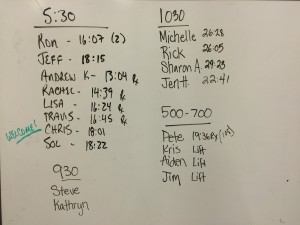 5:30
Ron - 16:07 (2)
JEFF - 18:15
ANDREW K- 13:04 Rx
RACHEL - 14:39 Rx
LISA - 16:24 Rx
TRAVIS - 16:45 Rx
WELCOME! CHRIS - 18:01
SOL - 18:22
930
Steve
Kathryn
1030
Michelle 26:28
Rick 26:05
Sharon A. 29:23
Jen H. 22:41
500-700
Pete 19:36 Rx
Kris Lift
Aiden Lift
Jim Lift